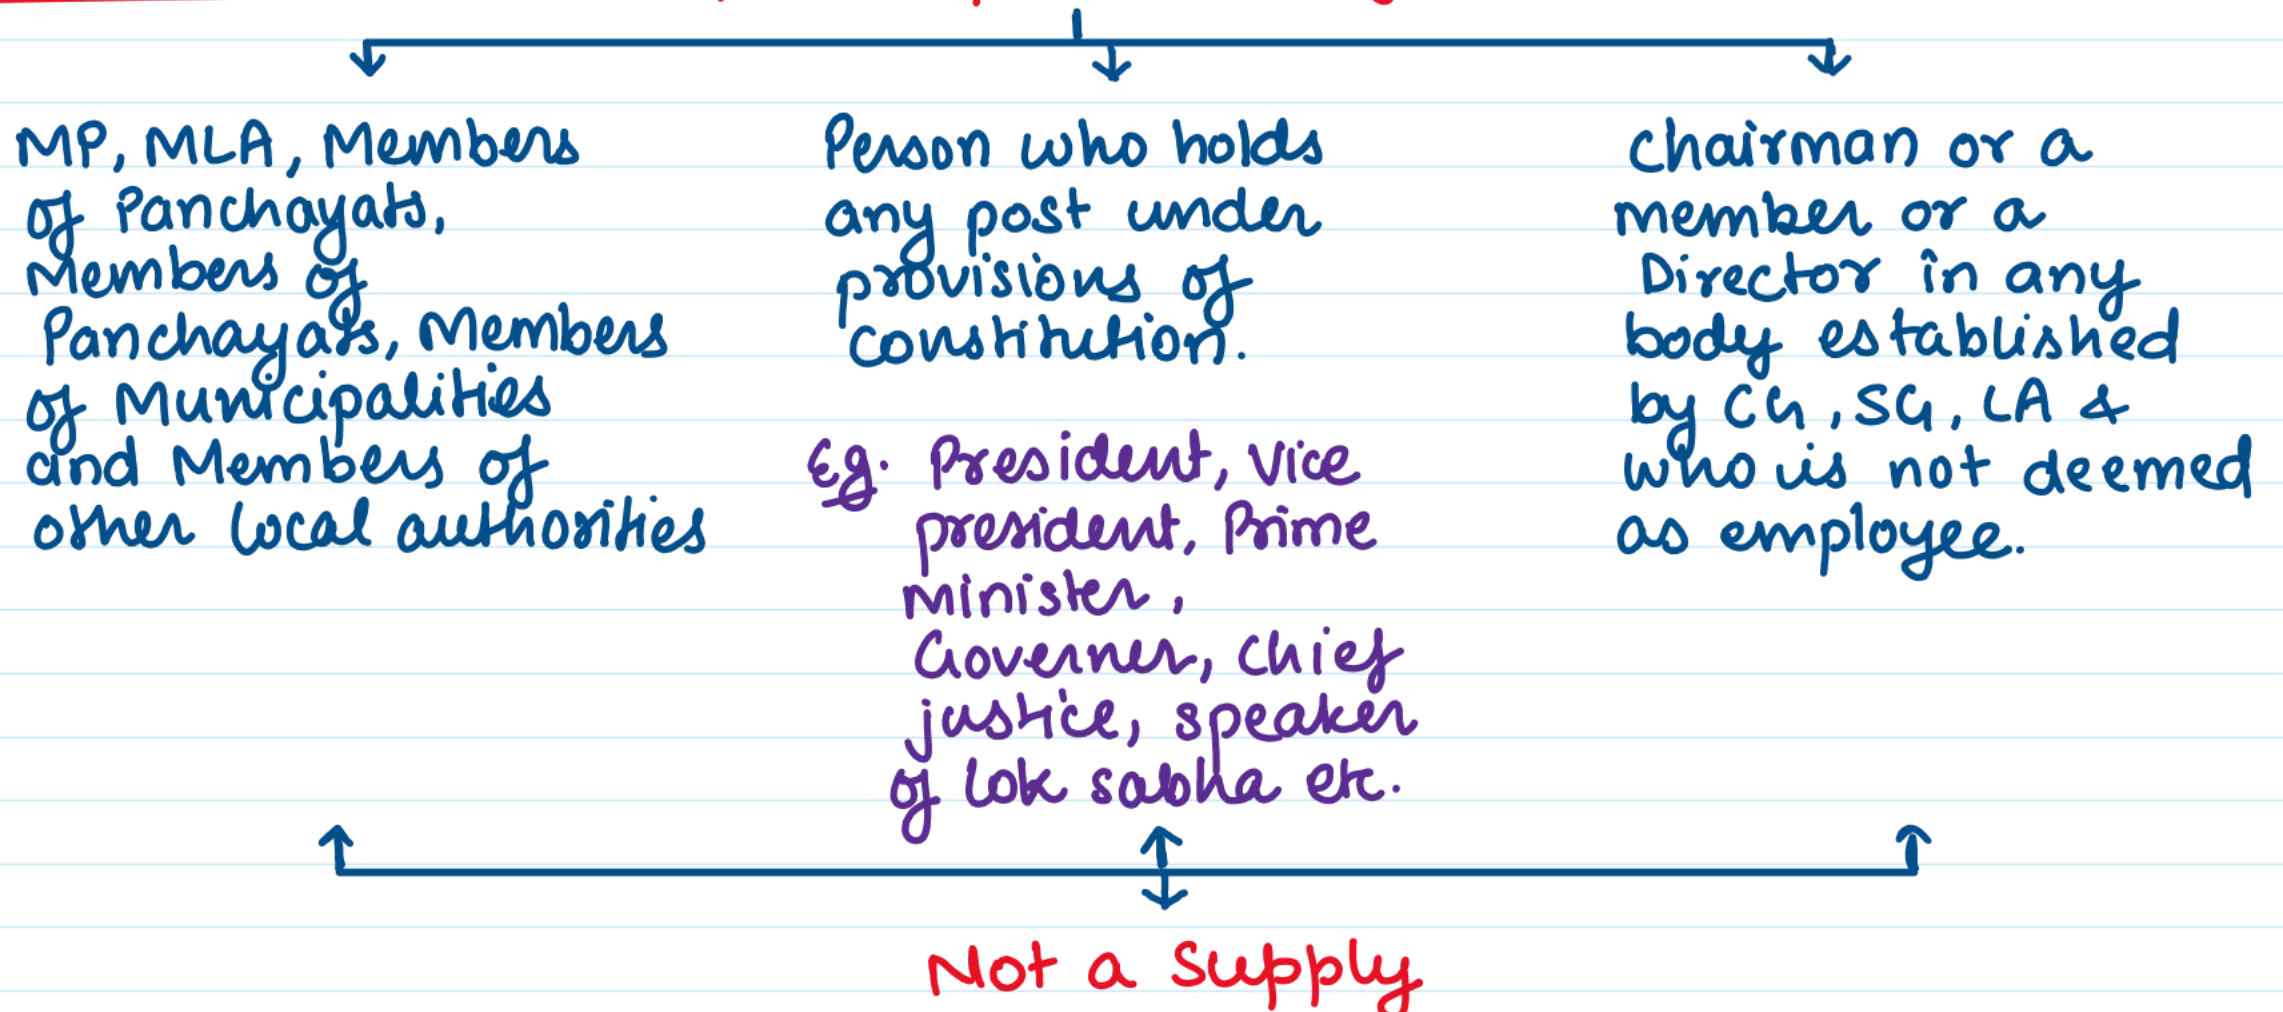 MP, MLA, Members
of Panchayats,
Members of
Panchayats, Members
of Municipalities
and Members of
other local authorities
Person who holds
any post under
provisions of
constitution.
Eg. President, Vice
president, Prime
minister,
Governer, chief
justice, speaker
of lok sabha etc.
Chairman or a
member or a
Director in any
body established
by CG, SG, LA &
who is not deemed
as employee.
Not a supply